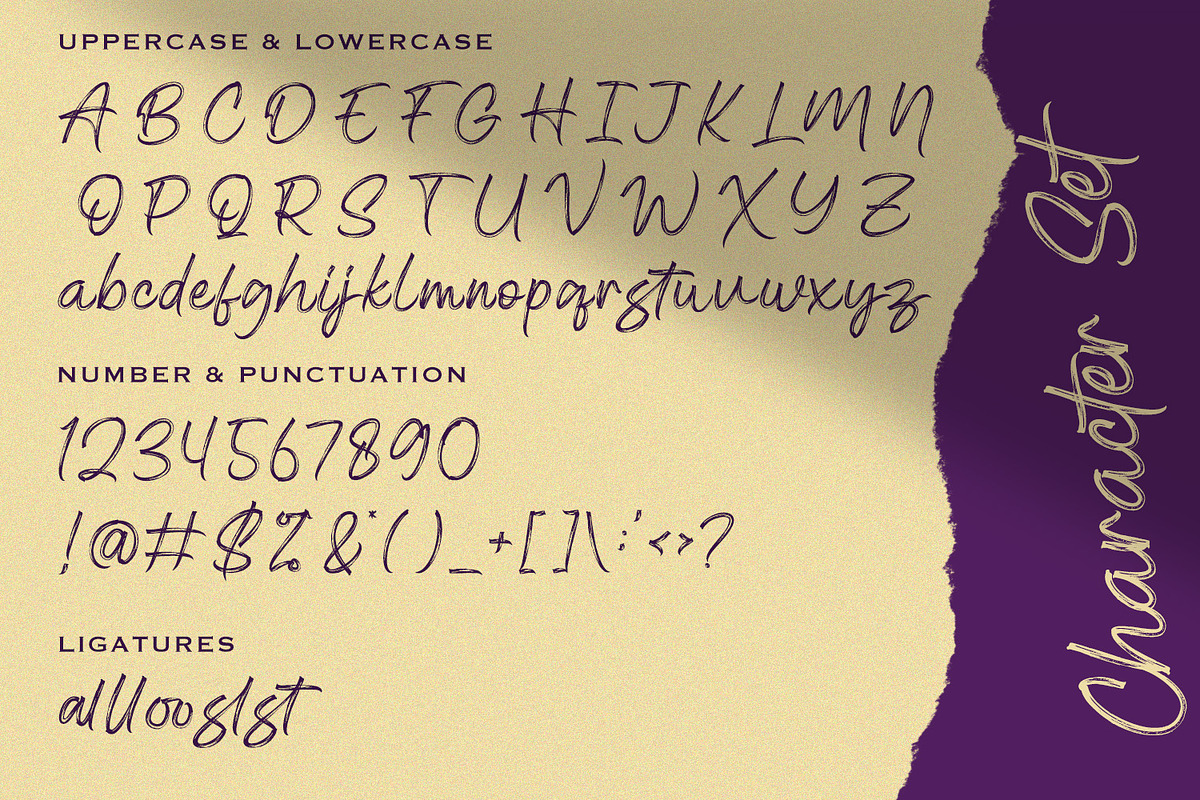 UPPERCASE & LOWERCASE
A B C D E F G H I J K L M N
O P Q R S T U V W X Y Z
abcdefghijklmnopqrstuvwxyz
NUMBER & PUNCTUATION
1234567890
!@#$%&*()_+[]\:'<>?
LIGATURES
alllooslst
Character Set